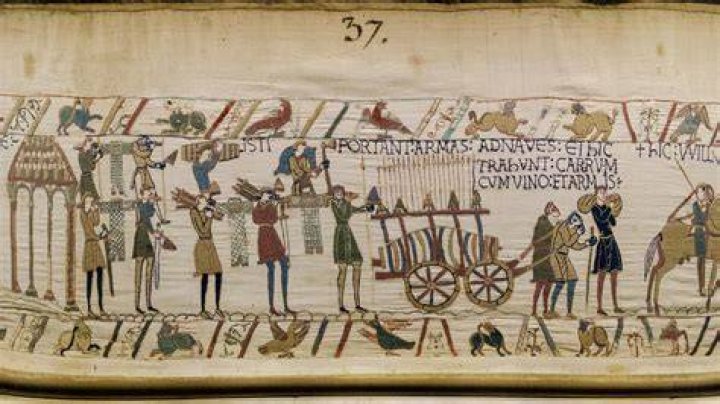 37.
E: ISTI PORTANT: ARMAS: ADNAVES: ET hIC
TRAhUNT: CARRVM
CVM VINO: ET ARMIS:
+ hIC: WILL